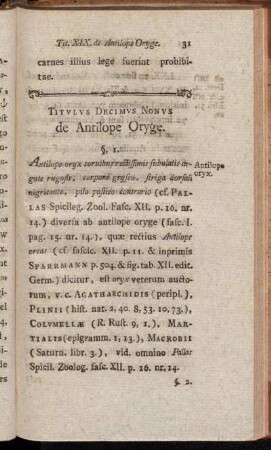 Tit. XIX. de Antilope Oryge. 31
carnes illius lege fuerint prohibi-
tae.
TITVLVS DECIMVS NONVS
de Antilope Oryge.
§. 1.
Antilope oryx cornibus rectissimis subulatis ar-
gute rugosis, corpore griseo, striga dorsali
nigricante, pilo postico contrario (cf. PAL-
LAS Spicileg. Zool. Fasc. XII. p. 16. nr.
14.) diversa ab antilope oryge (fasc. I.
pag. 15. nr. 14.), quae rectius Antilope
oreas (cf. fascic. XII. p. 11. & inprimis
SPARRMANN p. 504. & fig. tab. XII. edit.
Germ.) dicitur, est oryx veterum aucto-
rum, v. c. AGATHARCHIDIS (peripl.),
PLINII (hist. nat. 2, 40. 8, 53. 10, 73.),
COLVMELLÆ (R. Rust. 9, 1.), MAR-
TIALIS (epigramm. 1, 13.), MACROBII
(Saturn. libr. 3.), vid. omnino Pallas
Spicil. Zoolog. fasc. XII. p. 16. nr. 14.
§. 2.
Antilope
oryx.